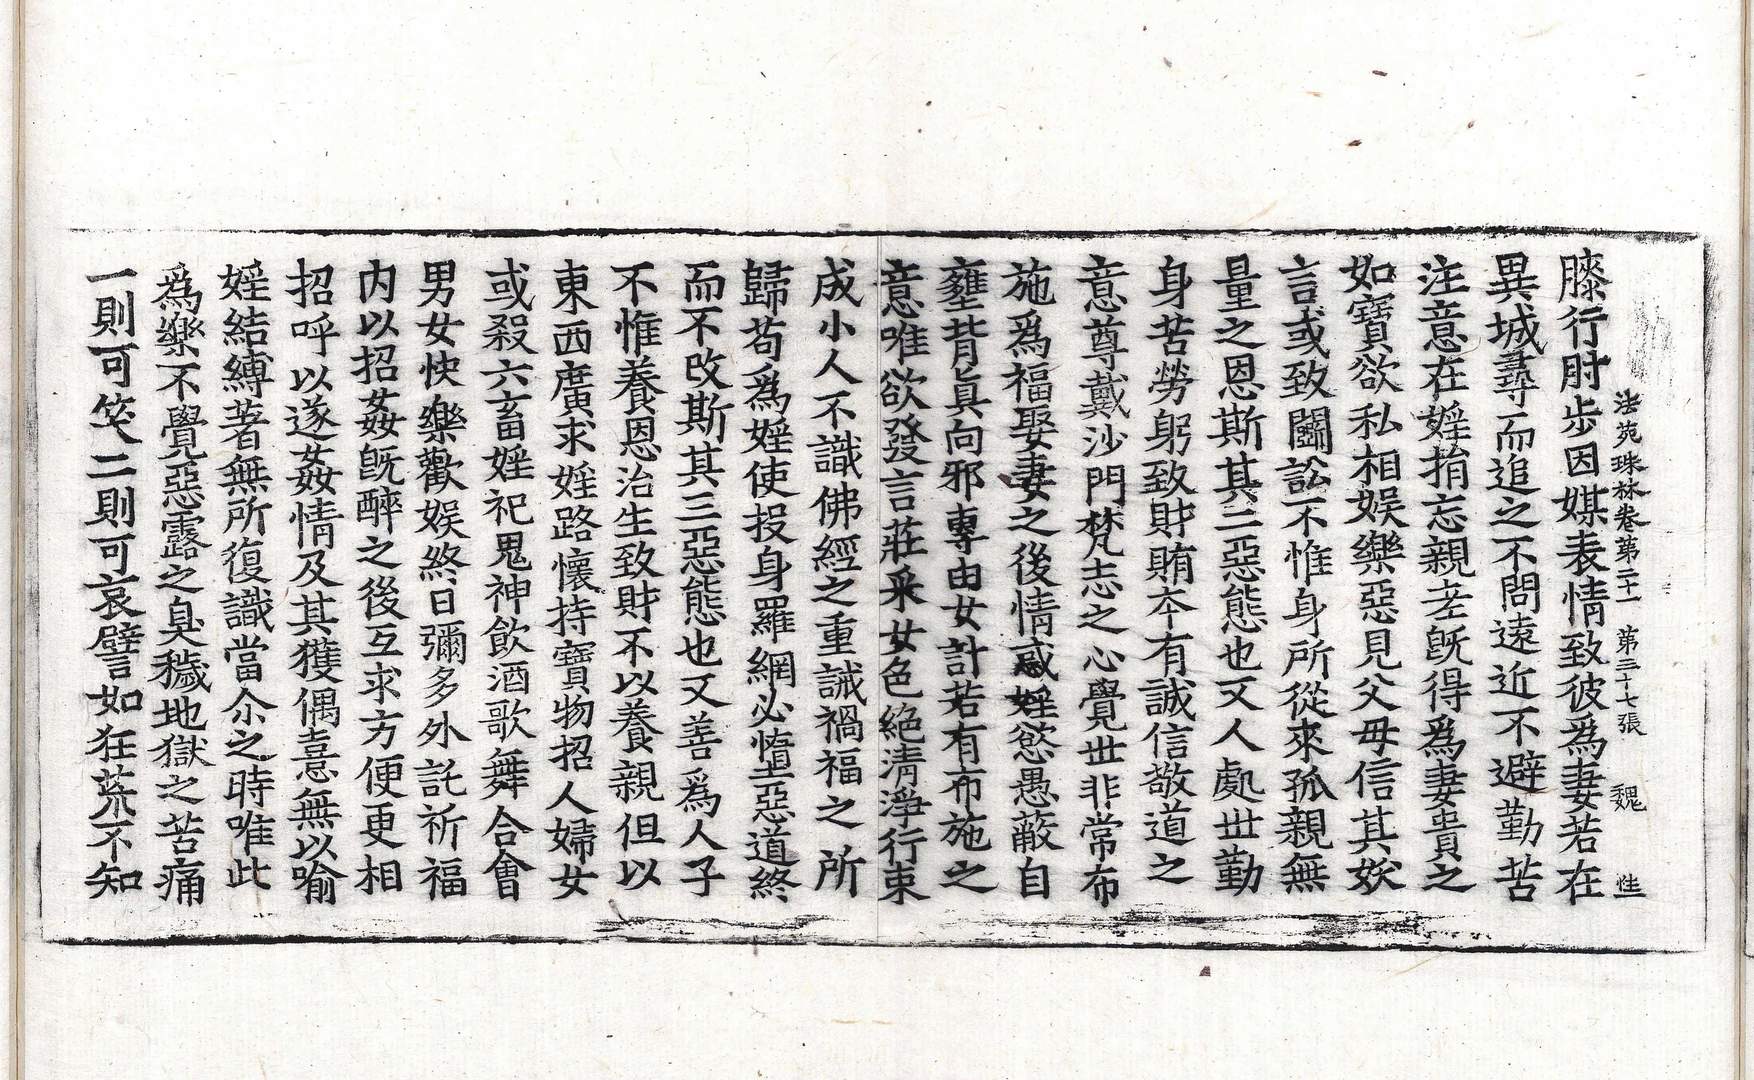 法苑珠林卷第二十一　第三十七張　魏　性
膝行肘步因媒表情致彼爲妻若在
異城尋而追之不問遠近不避勤苦
注意在婬捐忘親老旣得爲妻貴之
如寶欲私相娛樂惡見父母信其妖
言或致鬪訟不惟身所從來孤親無
量之恩斯其二惡態也又人處世勤
身苦勞躬致財賄夲有誠信敬道之
意尊戴沙門梵志之心覺世非常布
施爲福娶妻之後情惑婬慾愚蔽自
壅背眞向邪專由女計若有布施之
意唯欲發言莊采女色絕清淨行束
成小人不識佛經之重誡禍福之所
歸苟爲婬使投身羅網必墮惡道終
而不改斯其三惡態也又善爲人子
不惟養恩治生致財不以養親但以
東西廣求婬路懷持寶物招人婦女
或殺六畜婬祀鬼神飮酒歌舞合會
男女快樂歡娛終日彌多外託祈福
内以招姦旣醉之後互求方便更相
招呼以遂姦情及其獲偶憙無以喻
婬結縛著無所復識當尒之時唯此
爲樂不覺惡露之臭穢地獄之苦痛
一則可笑二則可哀譬如狂荒不知